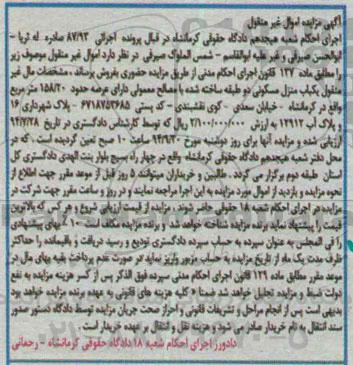 آگهی مزایده اموال غیر منقول
اجرای احکام شعبه هیجدهم دادگاه حقوقی کرمانشاه در قبال پرونده اجرائی ۸۷/۹۳ صادره له ثریا -
ابوالحسن صیرفی و غیره علیه ابوالقاسم - شمس الملوک صیرفی در نظر دارد اموال غیر منقول موصوف زیر
را مطابق ماده ۱۳۷ قانون اجرای احکام مدنی از طریق مزایده حضوری بفروش برساند ، مشخصات مال غیر
منقول یکباب منزل مسکونی دو طبقه ساخته شده با مصالح معمولی دارای عرصه حدود ۱۵۸/۲۰ متر مربع
واقع در کرمانشاه - خیابان سعدی - کوی نقشبندی - کد پستی ۶۷۱۸۷۵۳۶۸۵ - پلاک شهرداری ۱۶
و پلاک آب ۱۲۹۱۲ به ارزش ۲/۱۰۰/۰۰۰/۰۰۰ ریال که توسط کارشناس دادگستری در تاریخ ۹۴/۷/۲۸
ارزیابی شده و مزایده آنها برای روز دوشنبه مورخ ۹۴/۹/۳۰ ساعت ۱۰ صبح تعیین گردیده است . که در
محل دفتر شعبه هیجدهم دادگاه حقوقی کرمانشاه واقع در چهار راه بسیج بلوار بنت الهدی دادگستری کل
استان طبقه دوم برگزار می گردد . طالبین و خریداران میتوانند ۵ روز قبل از موعد مقرر جهت اطلاع از
نحوه مزایده و بازدید از اموال مورد مزایده به این اجرا مراجعه نمایند و در روز و ساعت مقرر جهت شرکت در
مزایده در اجرای احکام شعبه ۱۸ حقوقی حاضر شوند . مزایده از قیمت ارزیابی شروع و هر کس که بالاترین
قیمت را پیشنهاد نماید برنده مزایده شناخته خواهد شد و برنده مزایده مکلف است ۱۰٪ بهای پیشنهادی
را فی المجلس به عنوان سپرده به حساب سپرده دادگستری تودیع و رسید دریافت و باقیمانده را حداکثر
ظرف مدت یک ماه از تاریخ مزایده به حساب مزبور واریز نماید در صورت عدم پرداخت بقیه بهای مال در
موعد مقرر مطابق ماده ۱۲۹ قانون اجرای احکام مدنی سپرده فوق الذکر پس از کسر هزینه مزایده به نفع
دولت ضبط و مزایده تجدید خواهد شد ضمنا کلیه هزینه های قانونی به عهده برنده مزایده خواهد بود
بدیهی است پس از انجام مراحل و تشریفات قانونی و احراز صحت جریان مزایده توسط دادگاه دستور صدور
سند انتقال به نام خریدار صادر می شود و هزینه نقل و انتقال بر عهده خریدار است .
دادورز اجرای احکام شعبه ۱۸ دادگاه حقوقی کرمانشاه - رحمانی